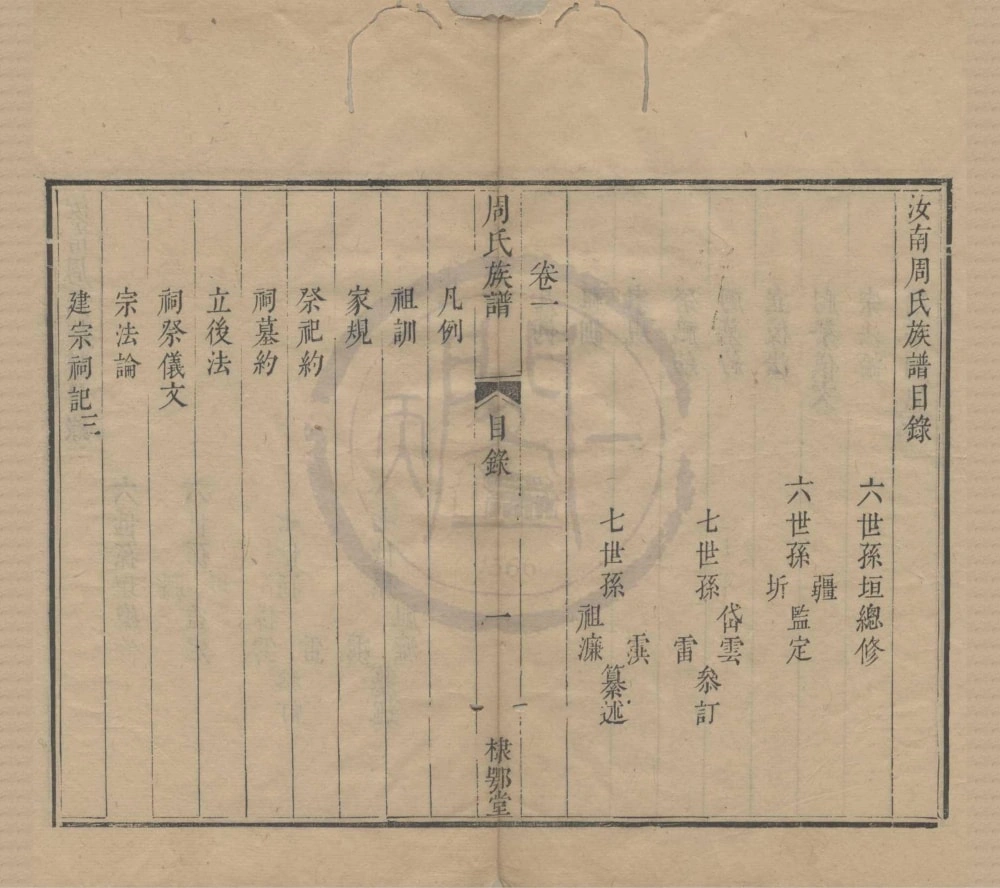 汝南周氏族譜目錄
六世孫垣總修
六世孫疆圻監定
七世孫岱雲雷叅訂
七世孫祖濂纂述
卷一
周氏族譜 目錄 一 棣鄂堂
凡例
祖訓
家規
祭祀約
祠墓約
立後法
祠祭儀文
宗法論
建宗祠記三